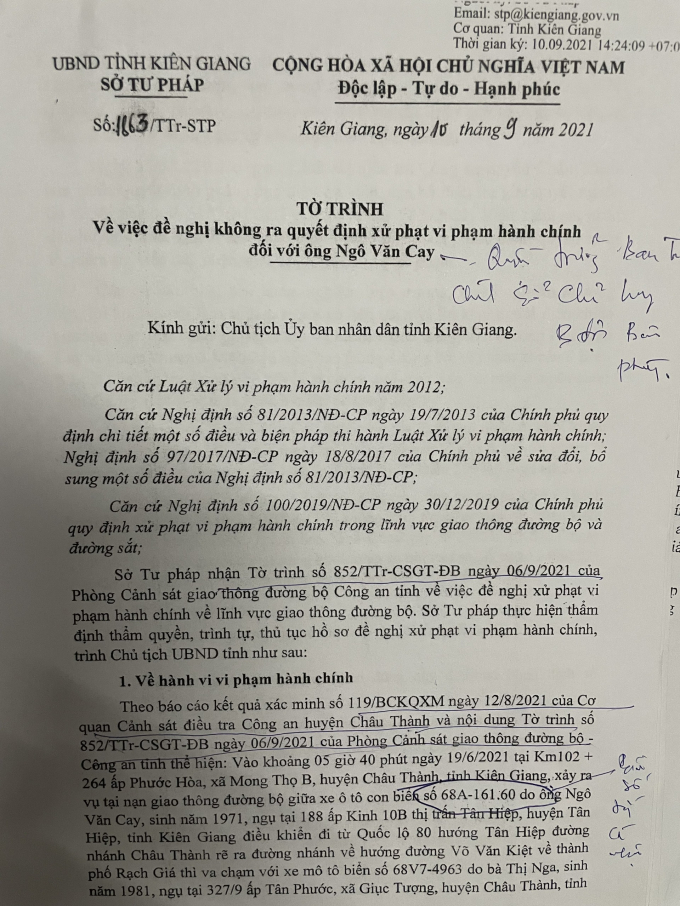 Email: stp@kiengiang.gov.vn
Cơ quan: Tỉnh Kiên Giang
Thời gian ký: 10.09.2021 14:24:09 +07:0
UBND TỈNH KIÊN GIANG
SỞ TƯ PHÁP
CỘNG HÒA XÃ HỘI CHỦ NGHĨA VIỆT NAM
Độc lập - Tự do - Hạnh phúc
Số:1163/TTr-STP
Kiên Giang, ngày 10 tháng 9 năm 2021
TỜ TRÌNH
Về việc đề nghị không ra quyết định xử phạt vi phạm hành chính
đối với ông Ngô Văn Cay
Ban
Chỉ huy
Kính gửi: Chủ tịch Ủy ban nhân dân tỉnh Kiên Giang.
Căn cứ Luật Xử lý vi phạm hành chính năm 2012;
Căn cứ Nghị định số 81/2013/NĐ-CP ngày 19/7/2013 của Chính phủ quy
định chi tiết một số điều và biện pháp thi hành Luật Xử lý vi phạm hành chính;
Nghị định số 97/2017/NĐ-CP ngày 18/8/2017 của Chính phủ về sửa đổi, bổ
sung một số điều của Nghị định số 81/2013/NĐ-CP;
Căn cứ Nghị định số 100/2019/NĐ-CP ngày 30/12/2019 của Chính phủ
quy định xử phạt vi phạm hành chính trong lĩnh vực giao thông đường bộ và
đường sắt;
Sở Tư pháp nhận Tờ trình số 852/TTr-CSGT-ĐB ngày 06/9/2021 của
Phòng Cảnh sát giao thông đường bộ Công an tỉnh về việc đề nghị xử phạt vi
phạm hành chính về lĩnh vực giao thông đường bộ. Sở Tư pháp thực hiện thẩm
định thẩm quyền, trình tự, thủ tục hồ sơ đề nghị xử phạt vi phạm hành chính,
trình Chủ tịch UBND tỉnh như sau:
1. Về hành vi vi phạm hành chính
Theo báo cáo kết quả xác minh số 119/BCKQXM ngày 12/8/2021 của Cơ
quan Cảnh sát điều tra Công an huyện Châu Thành và nội dung Tờ trình số
852/TTr-CSGT-ĐB ngày 06/9/2021 của Phòng Cảnh sát giao thông đường bộ -
Công an tỉnh thể hiện: Vào khoảng 05 giờ 40 phút ngày 19/6/2021 tại Km102 +
264 ấp Phước Hòa, xã Mong Thọ B, huyện Châu Thành, tỉnh Kiên Giang, xảy ra
vụ tại nạn giao thông đường bộ giữa xe ô tô con biển số 68A-161.60 do ông Ngô
Văn Cay, sinh năm 1971, ngụ tại 188 ấp Kinh 10B thị trấn Tân Hiệp, huyện Tân
Hiệp, tỉnh Kiên Giang điều khiển đi từ Quốc lộ 80 hướng Tân Hiệp đường
nhánh Châu Thành rẽ ra đường nhánh về hướng đường Võ Văn Kiệt về thành
phố Rạch Giá thì va chạm với xe mô tô biển số 68V7-4963 do bà Thị Nga, sinh
năm 1981, ngụ tại 327/9 ấp Tân Phước, xã Giục Tượng, huyện Châu Thành, tỉnh